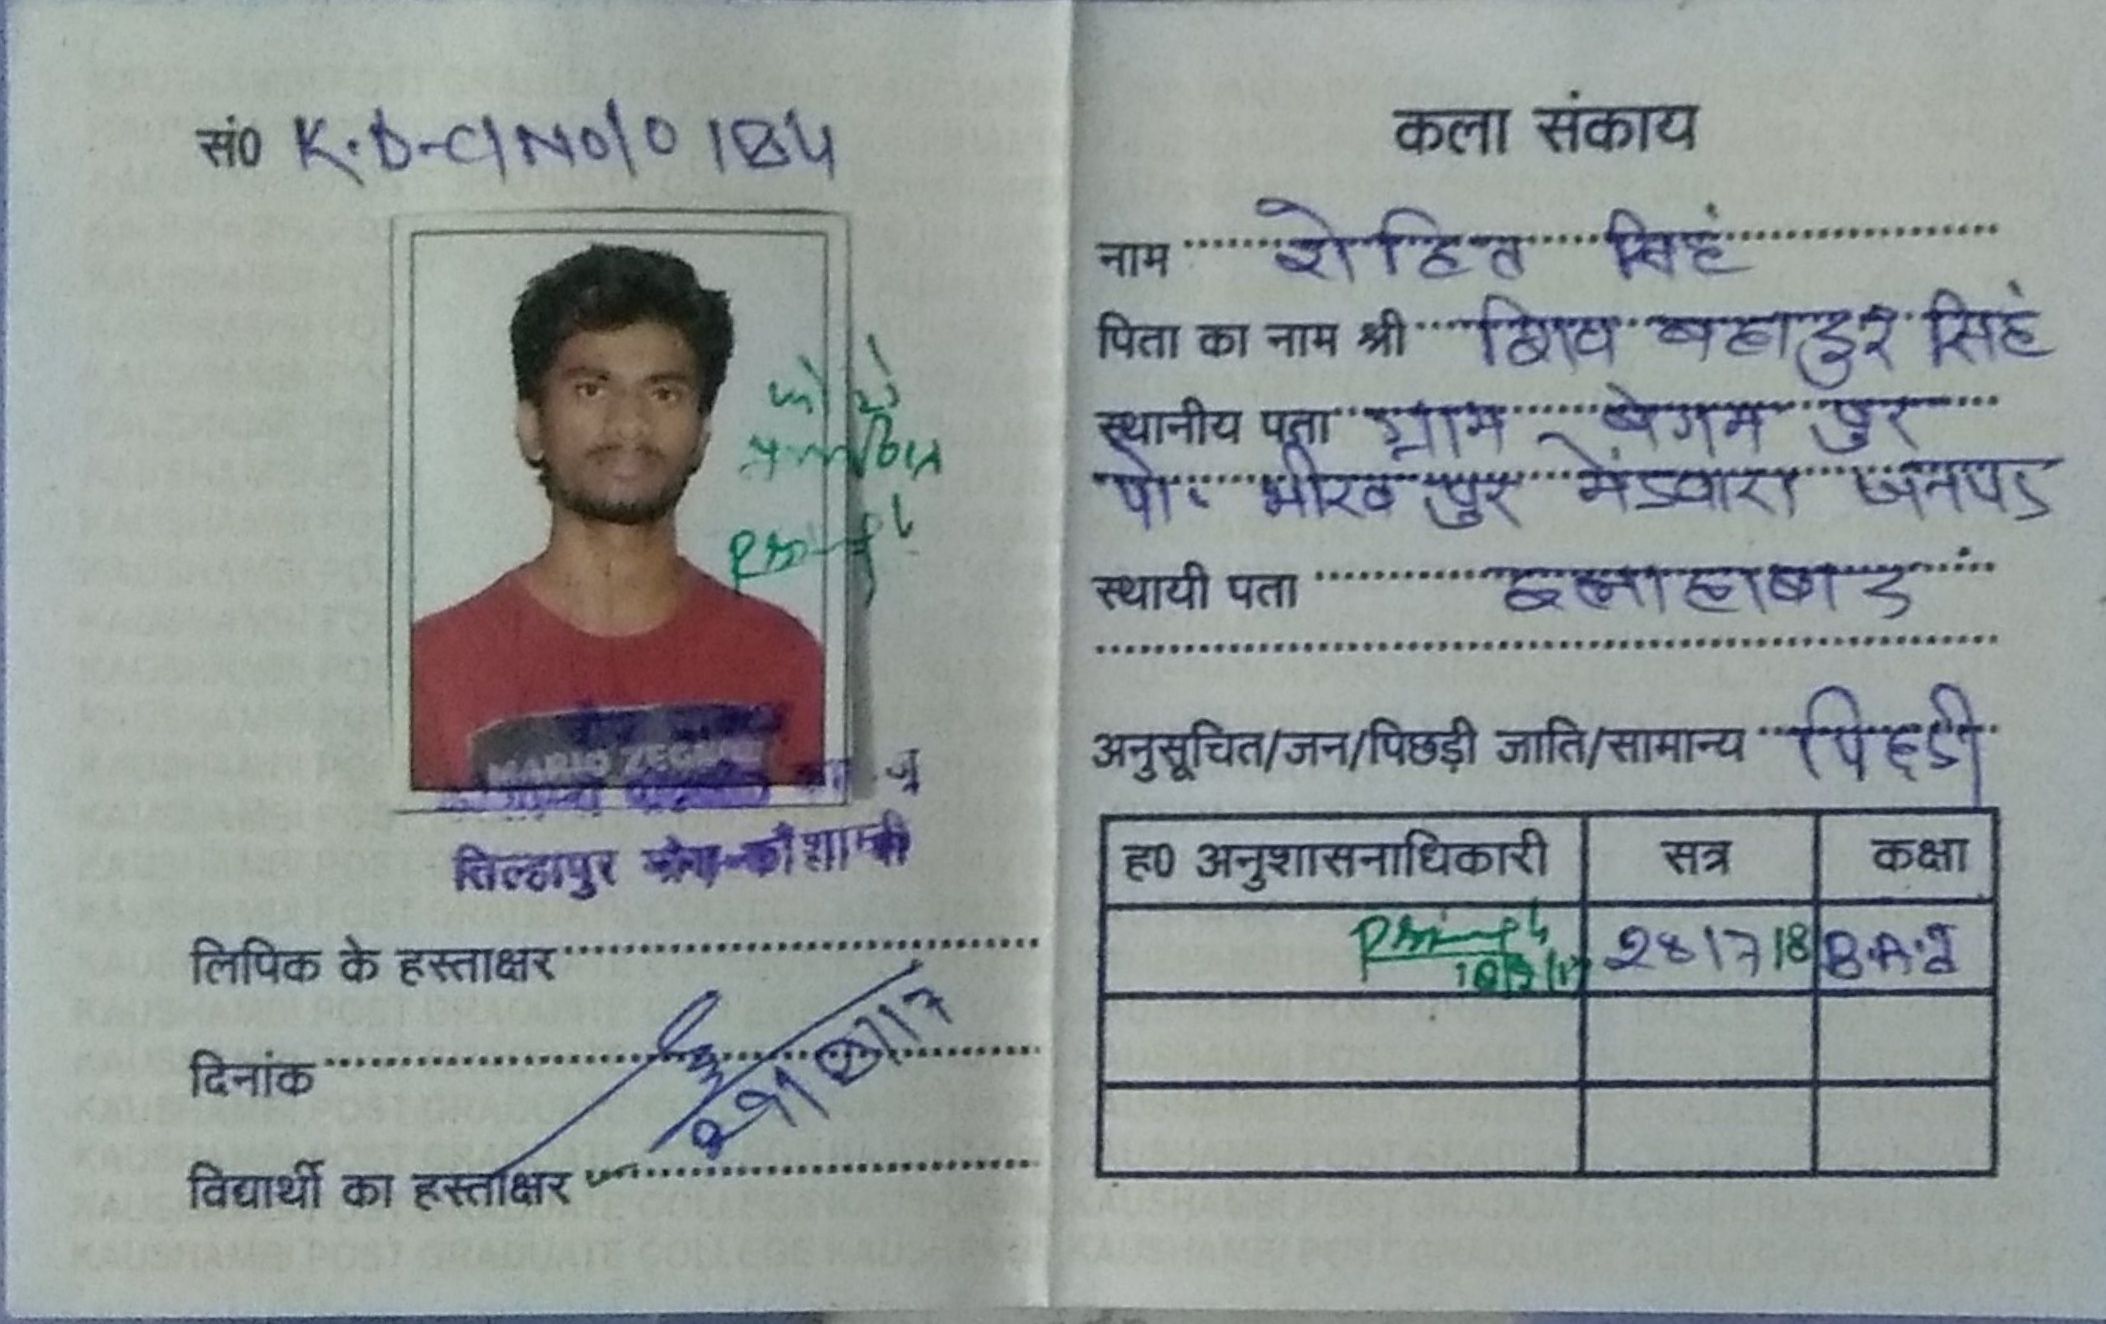 सं0 K.D-C/No/0184
MARIO ZEGANE
तिल्हापुर मोड़-कौशाम्बी
लिपिक के हस्ताक्षर
दिनांक
29/8/17
विद्यार्थी का हस्ताक्षर
कला संकाय
नाम रोहित सिहं
पिता का नाम श्री शिव बहादुर सिहं
स्थानीय पता ग्राम बेगम पुर
पो. भीख पुर मेडवारा जनपद
स्थायी पता इलाहाबाद
अनुसूचित/जन/पिछड़ी जाति/सामान्य पिछडी
ह0 अनुशासनाधिकारी सत्र कक्षा
RSingh 2817 18 B.A.I
KAUSHAMBI POST GRADUATE COLLEGE